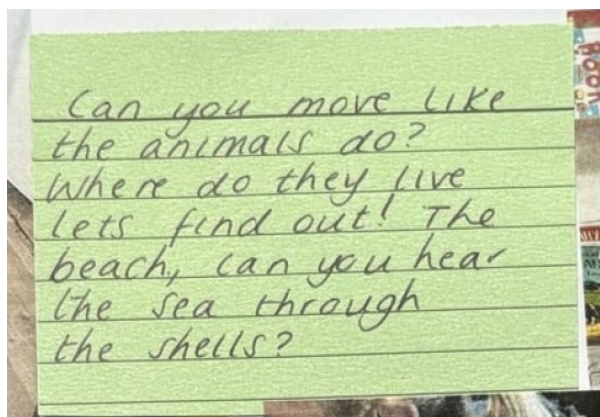 Can you move like
the animals do?
Where do they live
lets find out! The
beach, can you hear
the sea through
the shells?